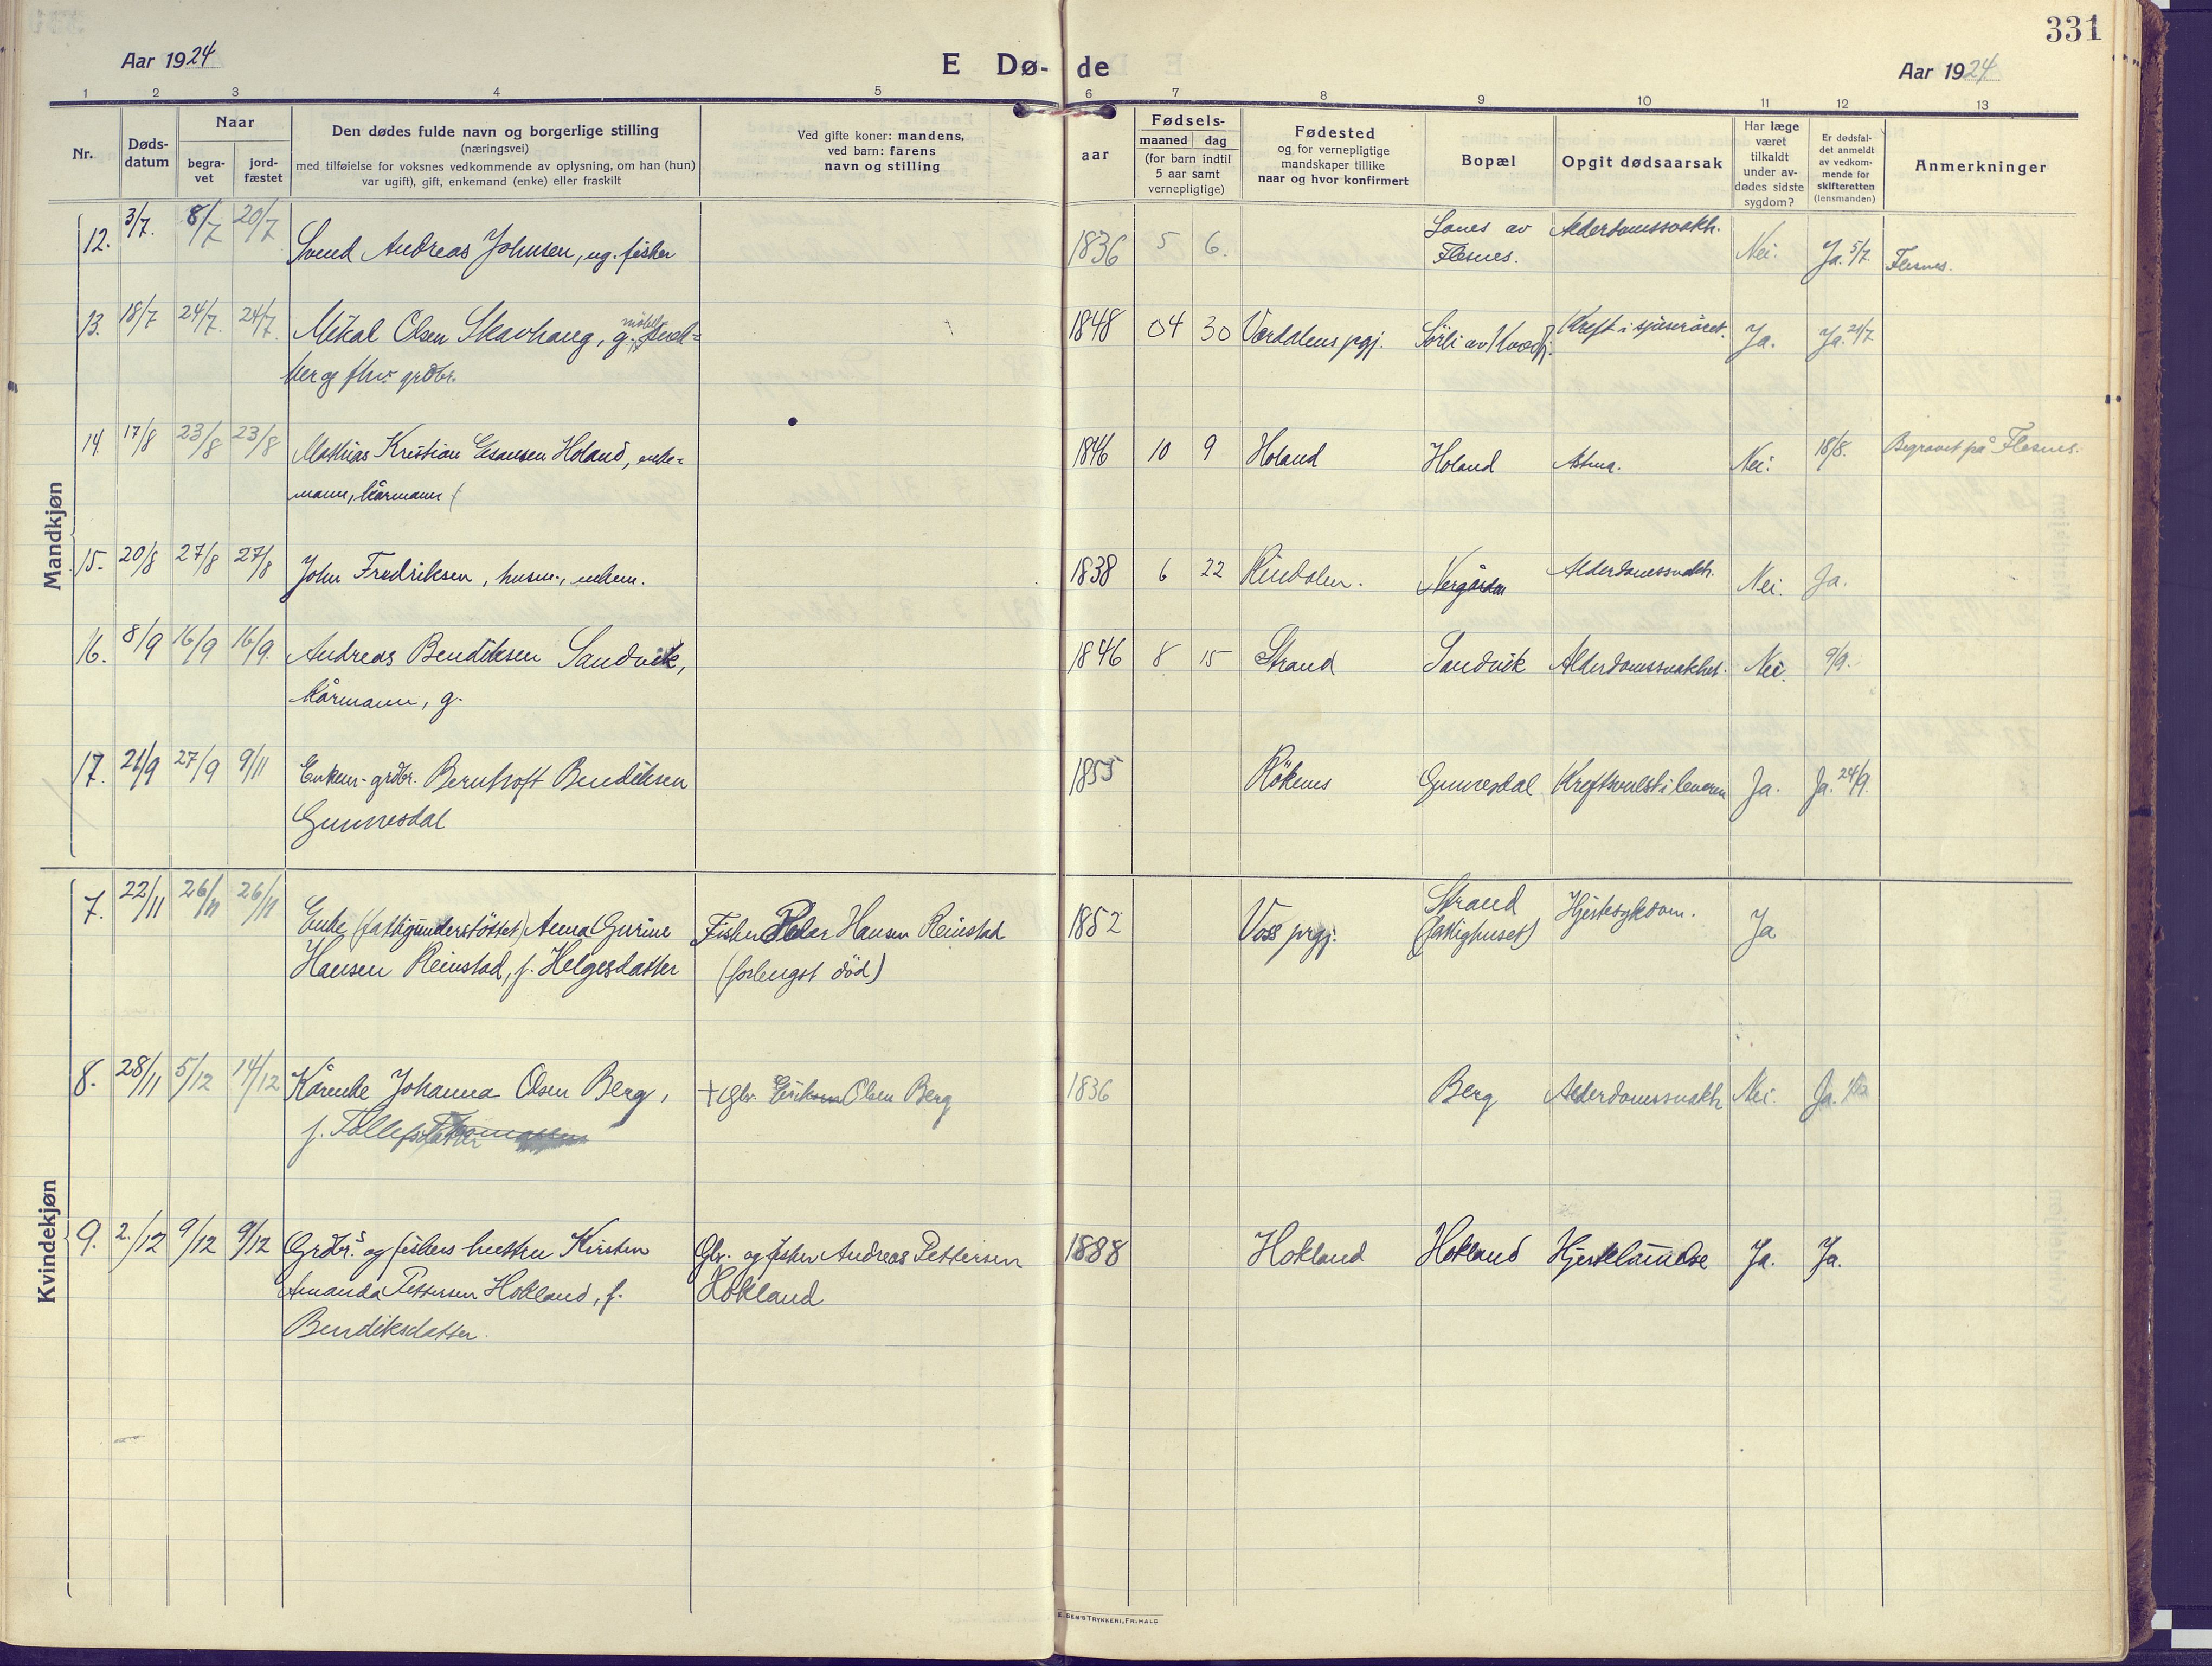 331
Aar 1924
E Dø-de
Aar 1924
1 2 3 4 5 6 7 8 9 10 11 12 13
Nr.
Døds-
datum
Naar
begra-
vet
jord-
fæstet
Den dødes fulde navn og borgerlige stilling
(næringsvei)
med tilføielse for voksnes vedkommende av oplysning, om han (hun)
var ugift), gift, enkemand (enke) eller fraskilt
Ved gifte koner: mandens,
ved barn: farens
navn og stilling
Fødsels-
aar
maaned dag
(for barn indtil
5 aar samt
vernepligtige)
Fødested
og for vernepligtige
mandskaper tillike
naar og hvor konfirmert
Bopæl
Opgit dødsaarsak
Har læge
været
tilkaldt
under av-
dødes sidste
sygdom?
Er dødsfal-
det anmeldt
av vedkom-
mende for
skifteretten
(lensmanden)
Anmerkninger
Mandkjøn
12. 3/7. 8/7 20/7
Svend Andreas Johnsen, ug. fisker
1836 5 6.
Sanes av
Flesnes.
Alderdomssvakh.
Nei. Ja. 5/7. Flesnes.
13. 18/7 24/7. 24/7.
Mikal Olsen Skavhaug, g.
møbel-
ker og fhv. grdbr.
1848 04 30 Værdalens pgj. Sörli av Kvæfj. Kreft i spiserøret. Ja. Ja. 21/7
14. 17/8 23/8 23/8
Mathias Kristian Esausen Holand, enke-
mann, kårmann
1846 10 9 Holand Holand Astma. Nei. 18/8. Begravet på Flesnes.
15. 20/8 27/8 27/8
John Fredriksen, husm., enkem.
1838 6 22 Rindalen. Vergården Alderdomssvakh. Nei. Ja.
16. 8/9 16/9 16/9.
Andreas Bendiksen Sandvik,
kårmann, g.
1846 8 15 Strand Sandvik Alderdomssvakhet. Nei. 9/9.
17. 21/9 27/9 9/11
Enkem. grdbr. Berntoft Bendiksen
Gunnesdal
1855 Rökenes Gunnesdal Kreftsvulst i leveren Ja. Ja. 24/9.
Kvindekjøn
7. 22/11 26/11 26/11
Enke (fattigunderstöttet) Anna Gurine
Hansen Reinstad, f. Helgesdatter
Fisker Peder Hansen Reinstad
(forlengst död)
1852 Voss prgj.
Strand
(fattighuset)
Hjertesykdom. Ja
8. 28/11 5/12 14/12
Kårenke Johanna Olsen Berg,
f. Tollefsdatter
+ gbr. Erik Olsen Berg
1836 Berg Alderdomssvakh. Nei. Ja.
9. 2./12 9/12 9/12
Grdbr.s og fiskers hustru Kirsten
Amanda Pettersen Hokland, f.
Bendiksdatter.
Gbr. og fisker Andreas Pettersen
Hokland
1888 Hokland Hokland Hjertelammelse Ja. Ja.